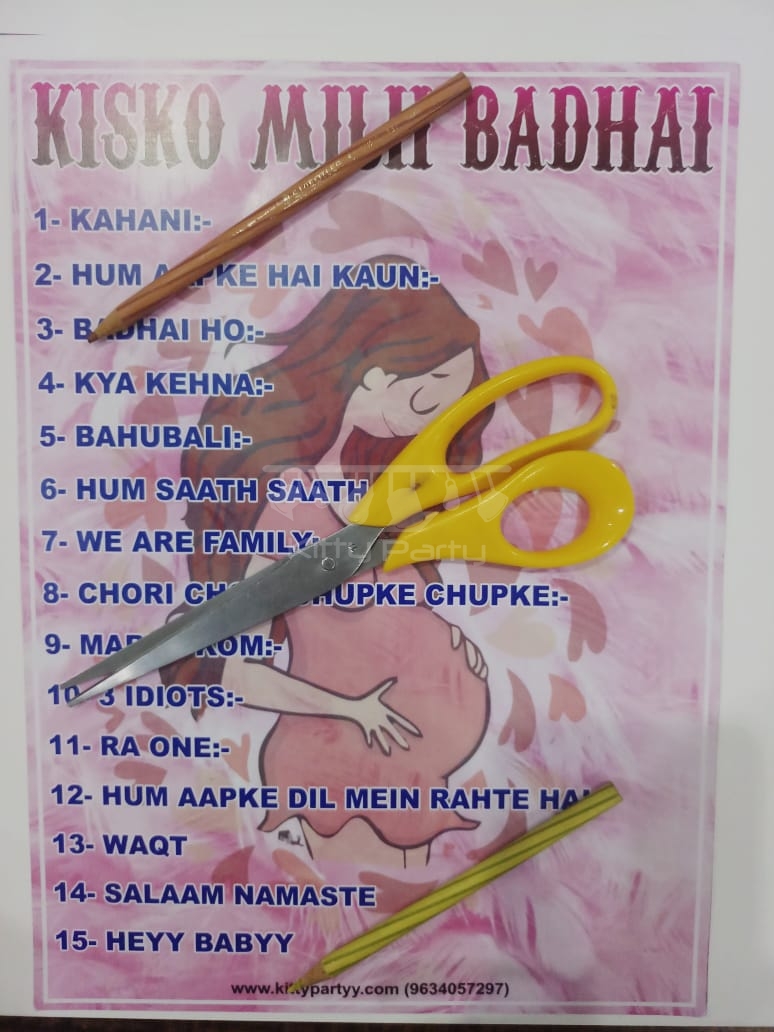 KISKO MILII BADHAI
1- KAHANI:-
2- HUM AAPKE HAI KAUN:-
3- BADHAI HO:-
4- KYA KEHNA:-
5- BAHUBALI:-
6- HUM SAATH SAATH
7- WE ARE FAMILY:-
Kitty Party
8- CHORI CHUPKE CHUPKE:-
9- KOM:-
10- 3 IDIOTS:-
11- RA ONE:-
12- HUM AAPKE DIL MEIN RAHTE HAI
13- WAQT
14- SALAAM NAMASTE
15- HEYY BABYY
www.kittypartyy.com (9634057297)